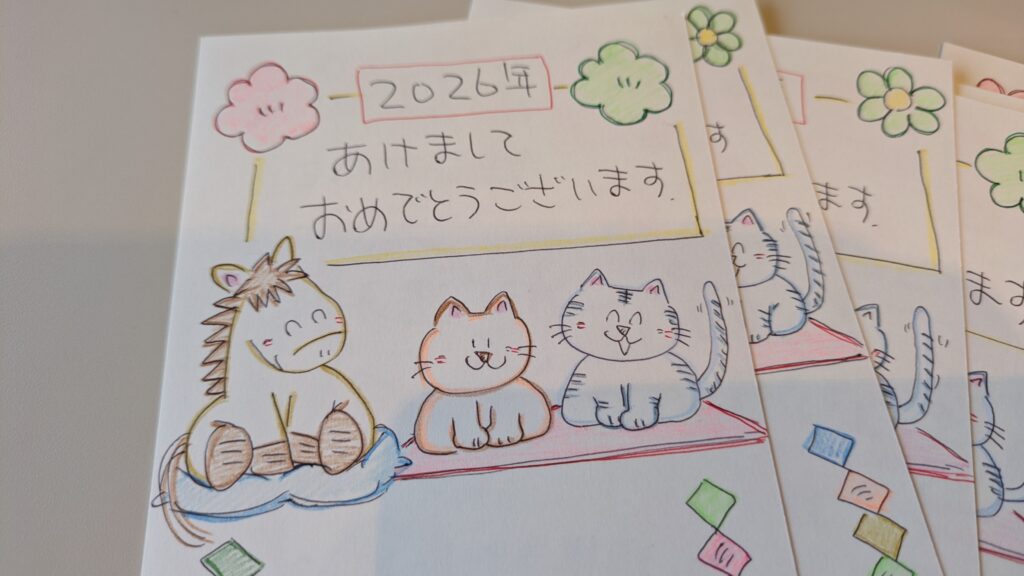 2026年
あけまして
おめでとうございます.
す
ます.
ます